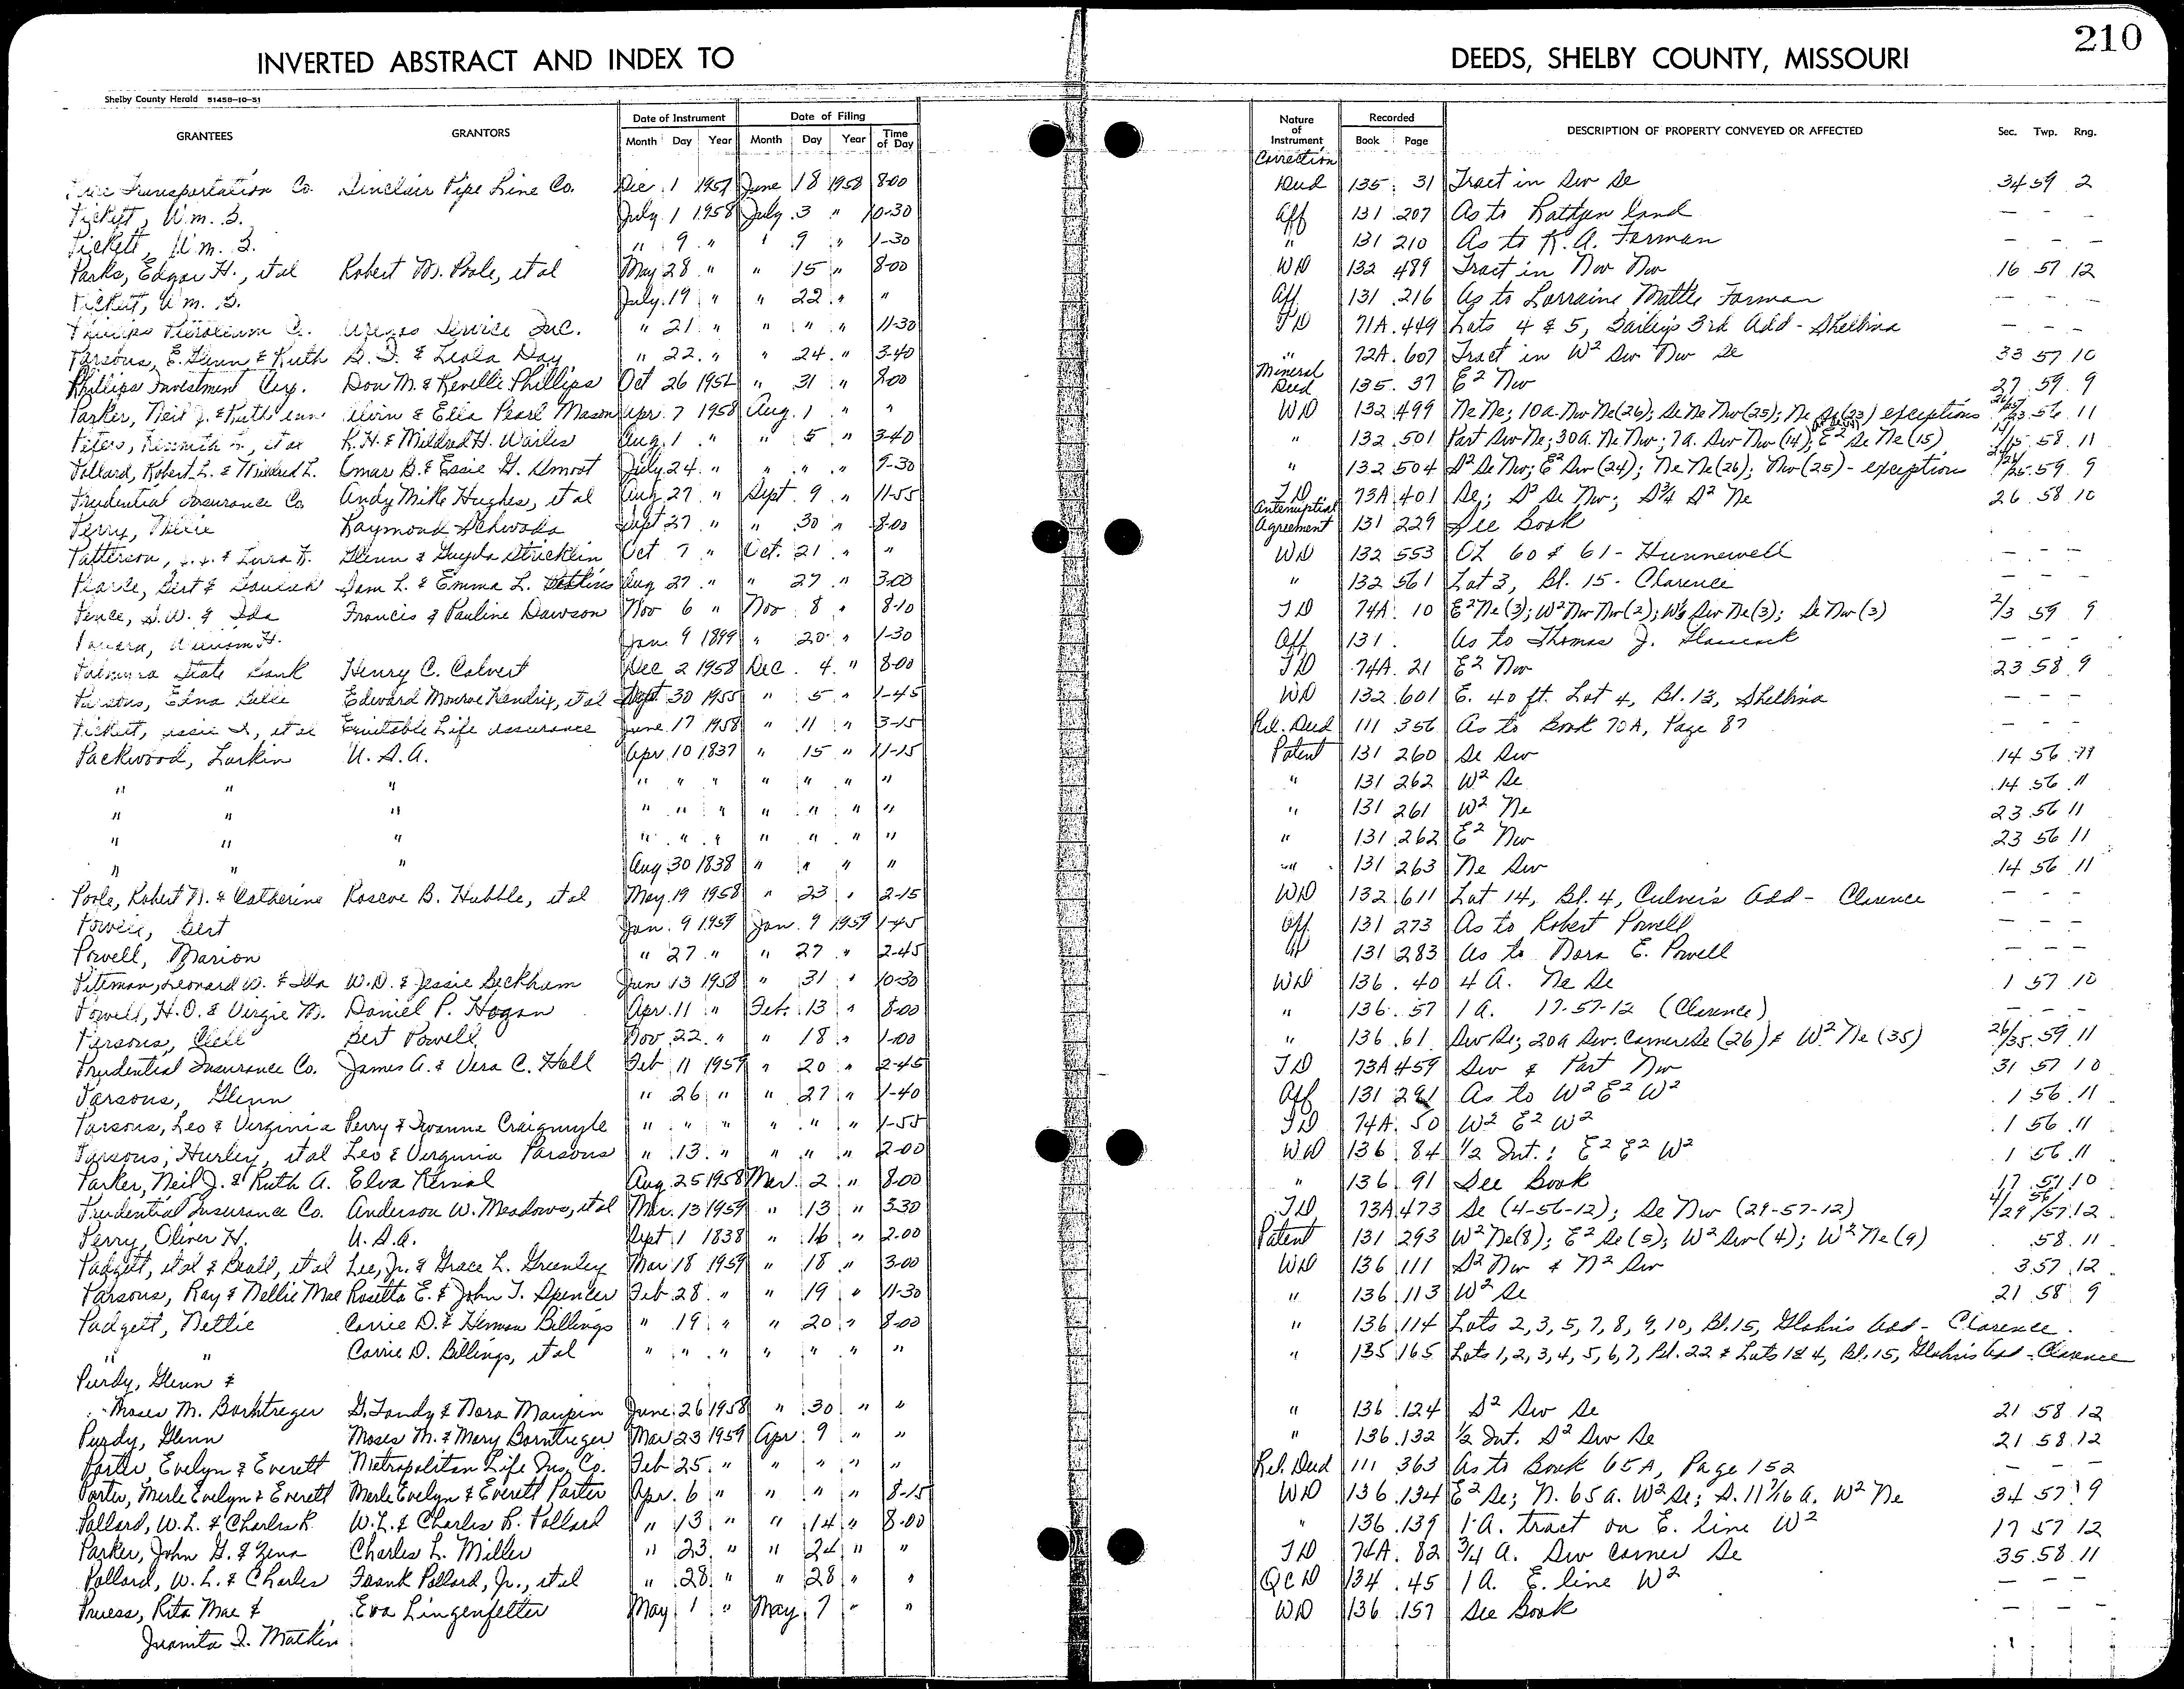 210
INVERTED ABSTRACT AND INDEX TO DEEDS, SHELBY COUNTY, MISSOURI
Shelby County Herald 51458-10-51
GRANTEES GRANTORS Date of Instrument Month Day Year Date of Filing Month Day Year Time of Day Nature of Instrument Recorded Book Page DESCRIPTION OF PROPERTY CONVEYED OR AFFECTED Sec. Twp. Rng.
Transportation Co. Sinclair Pipe Line Co. Dec. 1 1957 June 18 1958 8-00 Correction Deed 135 31 Tract in Sw Se 34 59 2
Pickett, Wm. S. July 1 1958 July 3 " 10-30 Aff 131 207 As to land - - -
Pickett, Wm. S. " 9 " " 9 " 1-30 " 131 210 As to K. A. Forman - - -
Parks, Edgar H., et al Robert M. Poole, et al May 28 " " 15 " 8-00 WD 132 489 Tract in Nw Nw 16 57 12
Pickett, Wm. S. July 19 " " 22 " " Aff. 131 216 As to Lorraine Mattle Forman - - -
Phillips Petroleum C. Service Inc. " 21 " " " " 11-30 TD 71A 449 Lots 4 & 5, Bailey's 3rd Add - Shelbina - - -
Parsons, E. Glenn & Ruth & Leola Day " 22 " " 24 " 3-40 " 72A 607 Tract in W² Sw Nw Se 33 57 10
Phillips Investment Don M. & Revelle Phillips Oct 26 195 " 31 " 8-00 Mineral Deed 135 37 E² Nw 27 59 9
Parker, Neil J. & Ruth Ann Alvin & Ella Pearl Mason Apr. 7 1958 Aug. 1 " " WD 132 499 Ne Ne; 10a. Nw Ne (26); Se Ne Nw (25); Ne (23) exceptions 56 11
Peters, Kenneth L., et ux R.H. & Mildred H. Wailes Aug. 1 " " 5 " 3-40 " 132 501 Part Sw Ne; 30a. Ne Nw; 7a. Sw Nw (14); E² Se Ne (15) 58 11
Pollard, Robert L. & Mildred L. Omar B. & Essie G. July 24 " " " " 9-30 " 132 504 S² Se Nw; E² Sw (24); Ne Ne (26); Nw (25) - exception 59 9
Prudential Insurance Co. Andy Mike Hughes, et al Aug 27 " Sept. 9 " 11-55 TD 73A 401 Se; S² Se Nw; S¾ S² Ne 26 58 10
Perry, Nellie Raymond Schwada Sept 27 " " 30 " 8-00 Antenuptial Agreement 131 229 See Book
Patterson, & Lura F. Glenn & Stricklin Oct 7 " Oct. 21 " " WD 132 553 OL 60 & 61 - Hunnewell - - -
Pearce, Bert & Sam L. & Emma L. Aug 27 " " 27 " 3-00 " 132 561 Lot 3, Bl. 15 - Clarence - - -
Pence, S.W. & Ida Francis & Pauline Dawson Nov 6 " Nov 8 " 8-10 TD 74A 10 E² Ne (3); W² Nw Nw (2); W½ Sw Ne (3); Se Nw (3) 2/3 59 9
William H. Jan. 9 1899 " 20 " 1-30 Aff 131 As to Thomas J. - - -
Palmyra State Bank Henry C. Calvert Dec 2 1958 Dec. 4 " 8-00 TD 74A 21 E² Nw 23 58 9
Edna Belle Edward Monroe Hendrix, et al Sept. 30 1955 " 5 " 1-45 WD 132 601 E. 40 ft. Lot 4, Bl. 13, Shelbina - - -
Pickett, et al Equitable Life Assurance June 17 1958 " 11 " 3-15 Rel. Deed 111 356 As to Book 70A, Page 87 - - -
Packwood, Larkin U. S. A. Apr 10 1837 " 15 " 11-15 Patent 131 260 Se Sw 14 56 11
" " " " " " " " " " " 131 262 W² Se 14 56 11
" " " " " " " " " " " 131 261 W² Ne 23 56 11
" " " " " " " " " " " 131 262 E² Nw 23 56 11
" " " Aug 30 1838 " " " " " 131 263 Ne Sw 14 56 11
Poole, Robert M. & Catherine Roscoe B. Hubble, et al May 19 1958 " 23 " 2-15 WD 132 611 Lot 14, Bl. 4, Culver's Add - Clarence - - -
Powell, Bert Jan. 9 1959 Jan. 9 1959 1-45 Aff. 131 273 As to Robert Powell - - -
Powell, Marion " 27 " " 27 " 2-45 Aff 131 283 As to Nora E. Powell - - -
Piteman, Leonard W. & Ida W.D. & Jessie Beckham Jun 13 1958 " 31 " 10-30 WD 136 40 4 A. Ne Se 1 57 10
Powell, H.O. & Virgie M. Daniel P. Hogan Apr. 11 " Feb. 13 " 8-00 " 136 57 1 A. 17-57-12 (Clarence) - - -
Parsons, Clell Bert Powell Nov 22 " " 18 " 1-00 " 136 61 Sw Se; 20a Sw. Corner Se (26) & W² Ne (35) 26/35 59 11
Prudential Insurance Co. James A. & Vera C. Hall Feb 11 1959 " 20 " 2-45 TD 73A 459 Sw & Part Nw 31 57 10
Parsons, Glenn " 26 " " 27 " 1-40 Aff 131 291 As to W² E² W² 1 56 11
Parsons, Leo & Virginia Perry & Iwanna Craigmyle " " " " " " 1-55 TD 74A 50 W² E² W² 1 56 11
Parsons, Hurley, et al Leo & Virginia Parsons " 13 " " " " 2-00 WD 136 84 ½ Int.; E² E² W² 1 56 11
Parker, Neil J. & Ruth A. Elva Kimal Aug 25 1958 Mar. 2 " 8-00 " 136 91 See Book 17 57 10
Prudential Insurance Co. Anderson W. Meadows, et al Mar. 13 1959 " 13 " 3-30 TD 73A 473 Se (4-56-12); Se Nw (29-57-12) 4/29 56/57 12
Perry, Oliver H. U. S. A. Sept 1 1838 " 16 " 2-00 Patent 131 293 W² Ne (8); E² Se (5); W² Sw (4); W² Ne (9) 58 11
Padgett, et al & Beall, et al Lee, Jr. & Grace L. Greenley Mar 18 1959 " 18 " 3-00 WD 136 111 S² Nw & N² Sw 3 57 12
Parsons, Ray & Nellie Mae Rosetta E. & John T. Spencer Feb 28 " " 19 " 11-30 " 136 113 W² Se 21 58 9
Padgett, Nettie Carrie D. & Heman Billings " 19 " " 20 " 8-00 " 136 114 Lots 2, 3, 5, 7, 8, 9, 10, Bl. 15, Glahn's Add - Clarence
" " Carrie D. Billings, et al " " " " " " " " 135 165 Lots 1, 2, 3, 4, 5, 6, 7, Bl. 22 & Lots 1 & 4, Bl. 15, Glahn's Add - Clarence
Purdy, Glenn &
Moses M. Borntreger G. Tandy & Nora Maupin June 26 1958 " 30 " " " 136 124 S² Sw Se 21 58 12
Purdy, Glenn Moses M. & Mary Borntreger Mar 23 1959 Apr 9 " " " 136 132 ½ Int. S² Sw Se 21 58 12
Porter, Evelyn & Everett Metropolitan Life Ins. Co. Feb 25 " " " " " Rel. Deed 111 363 As to Book 65A, Page 152 - - -
Porter, Merle Evelyn & Everett Merle Evelyn & Everett Porter Apr. 6 " " " " 8-15 WD 136 134 E² Se; N. 65a. W² Se; S. 11 7/16 a. W² Ne 34 57 9
Pollard, W.L. & Charles R. W.L. & Charles R. Pollard " 13 " " 14 " 8-00 " 136 139 1 A. tract on E. line W² 17 57 12
Parker, John G. & Zena Charles L. Miller " 23 " " 24 " " TD 74A 82 ¾ a. Sw corner Se 35 58 11
Pollard, W.L. & Charles Frank Pollard, Jr., et al " 28 " " 28 " " QCD 134 45 1 A. E. line W² - - -
Pruess, Rita Mae & Eva Lingenfelter May 1 " May 7 " " WD 136 157 See Book - - -
Juanita I. Mackin